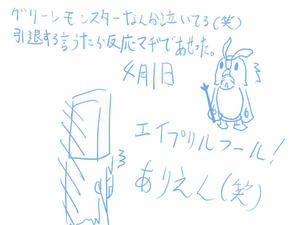 グリーンモンスターなんか泣いてる(笑)
引退する言うたら反応マヂであせった。
4月1日
エイプリルフール!
ありえん(笑)